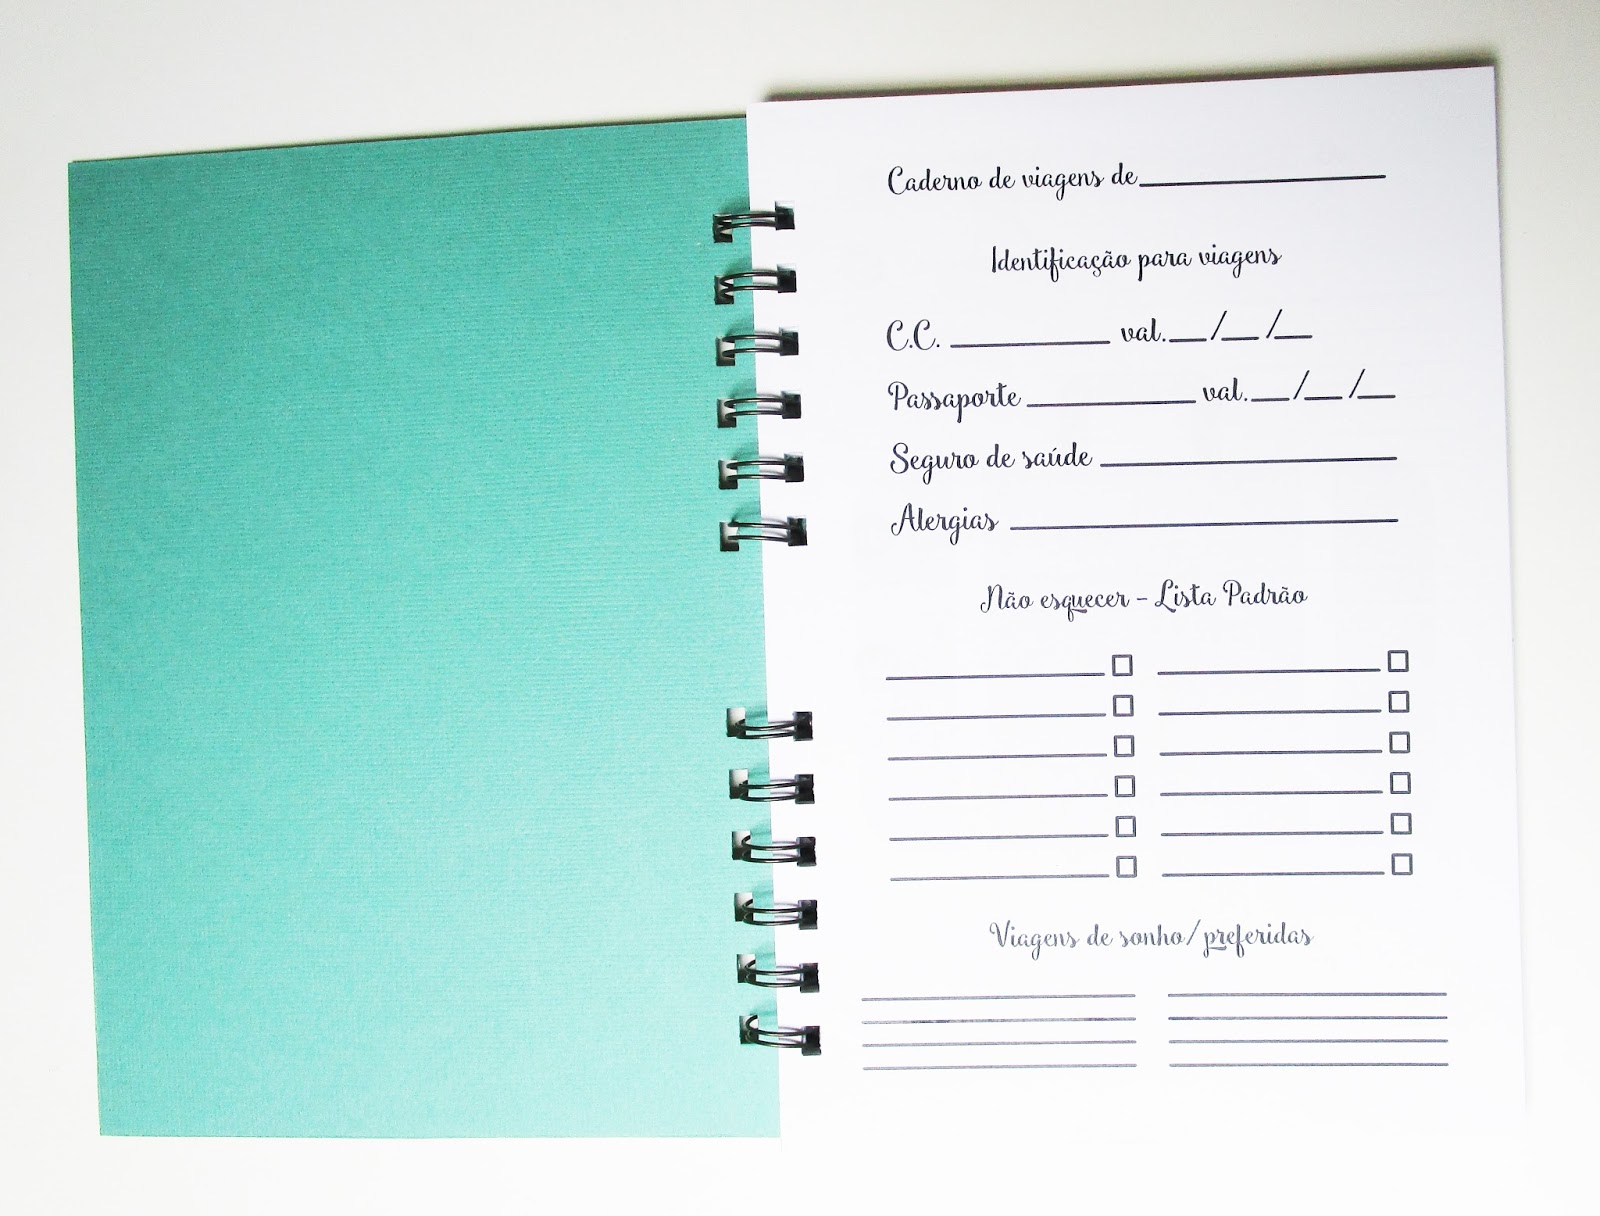 Caderno de viagens de
Identificação para viagens
C.C. val. / /
Passaporte val. / /
Seguro de saúde
Alergias
Não esquecer - Lista Padrão
Viagens de sonho/preferidas